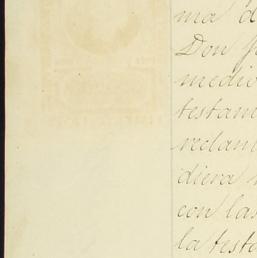 ma d
Don J
medio
testam
reclam
diera
con las
la testa